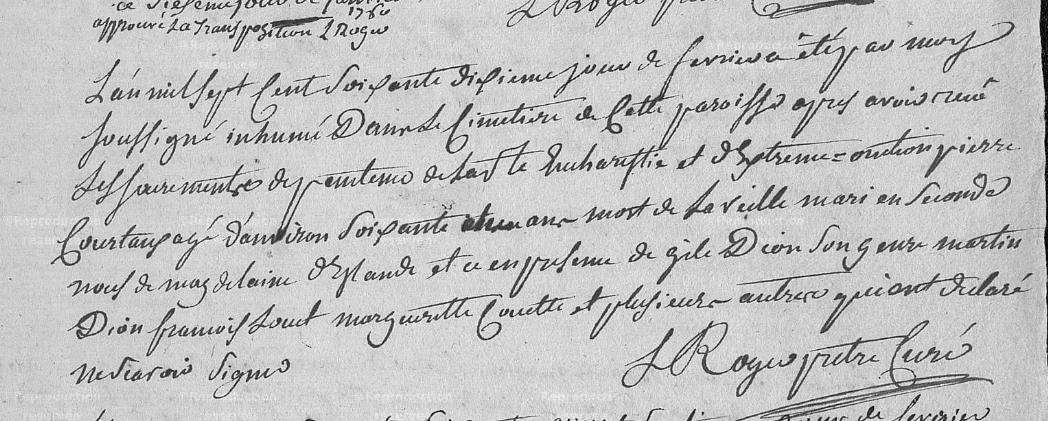 1760
approuvé la transposition L Roger
L'an mil sept cent soixante dixieme jour de fevrier a été par moy
soussigné inhumé dans le cimetiere de cette paroisse apres avoir recu
les sacrements de penitence de la ste Eucharistie et d'Extreme=onction pierre
Courtan agé d'anviron soixante et un ans mort de la veille mari en seconde
noces de magdelaine et ce en presence de gile Dion son genre martin
Dion francois marguerite et plusieurs autres qui ont declaré
ne scavoir signer
L Roger pretre Curé